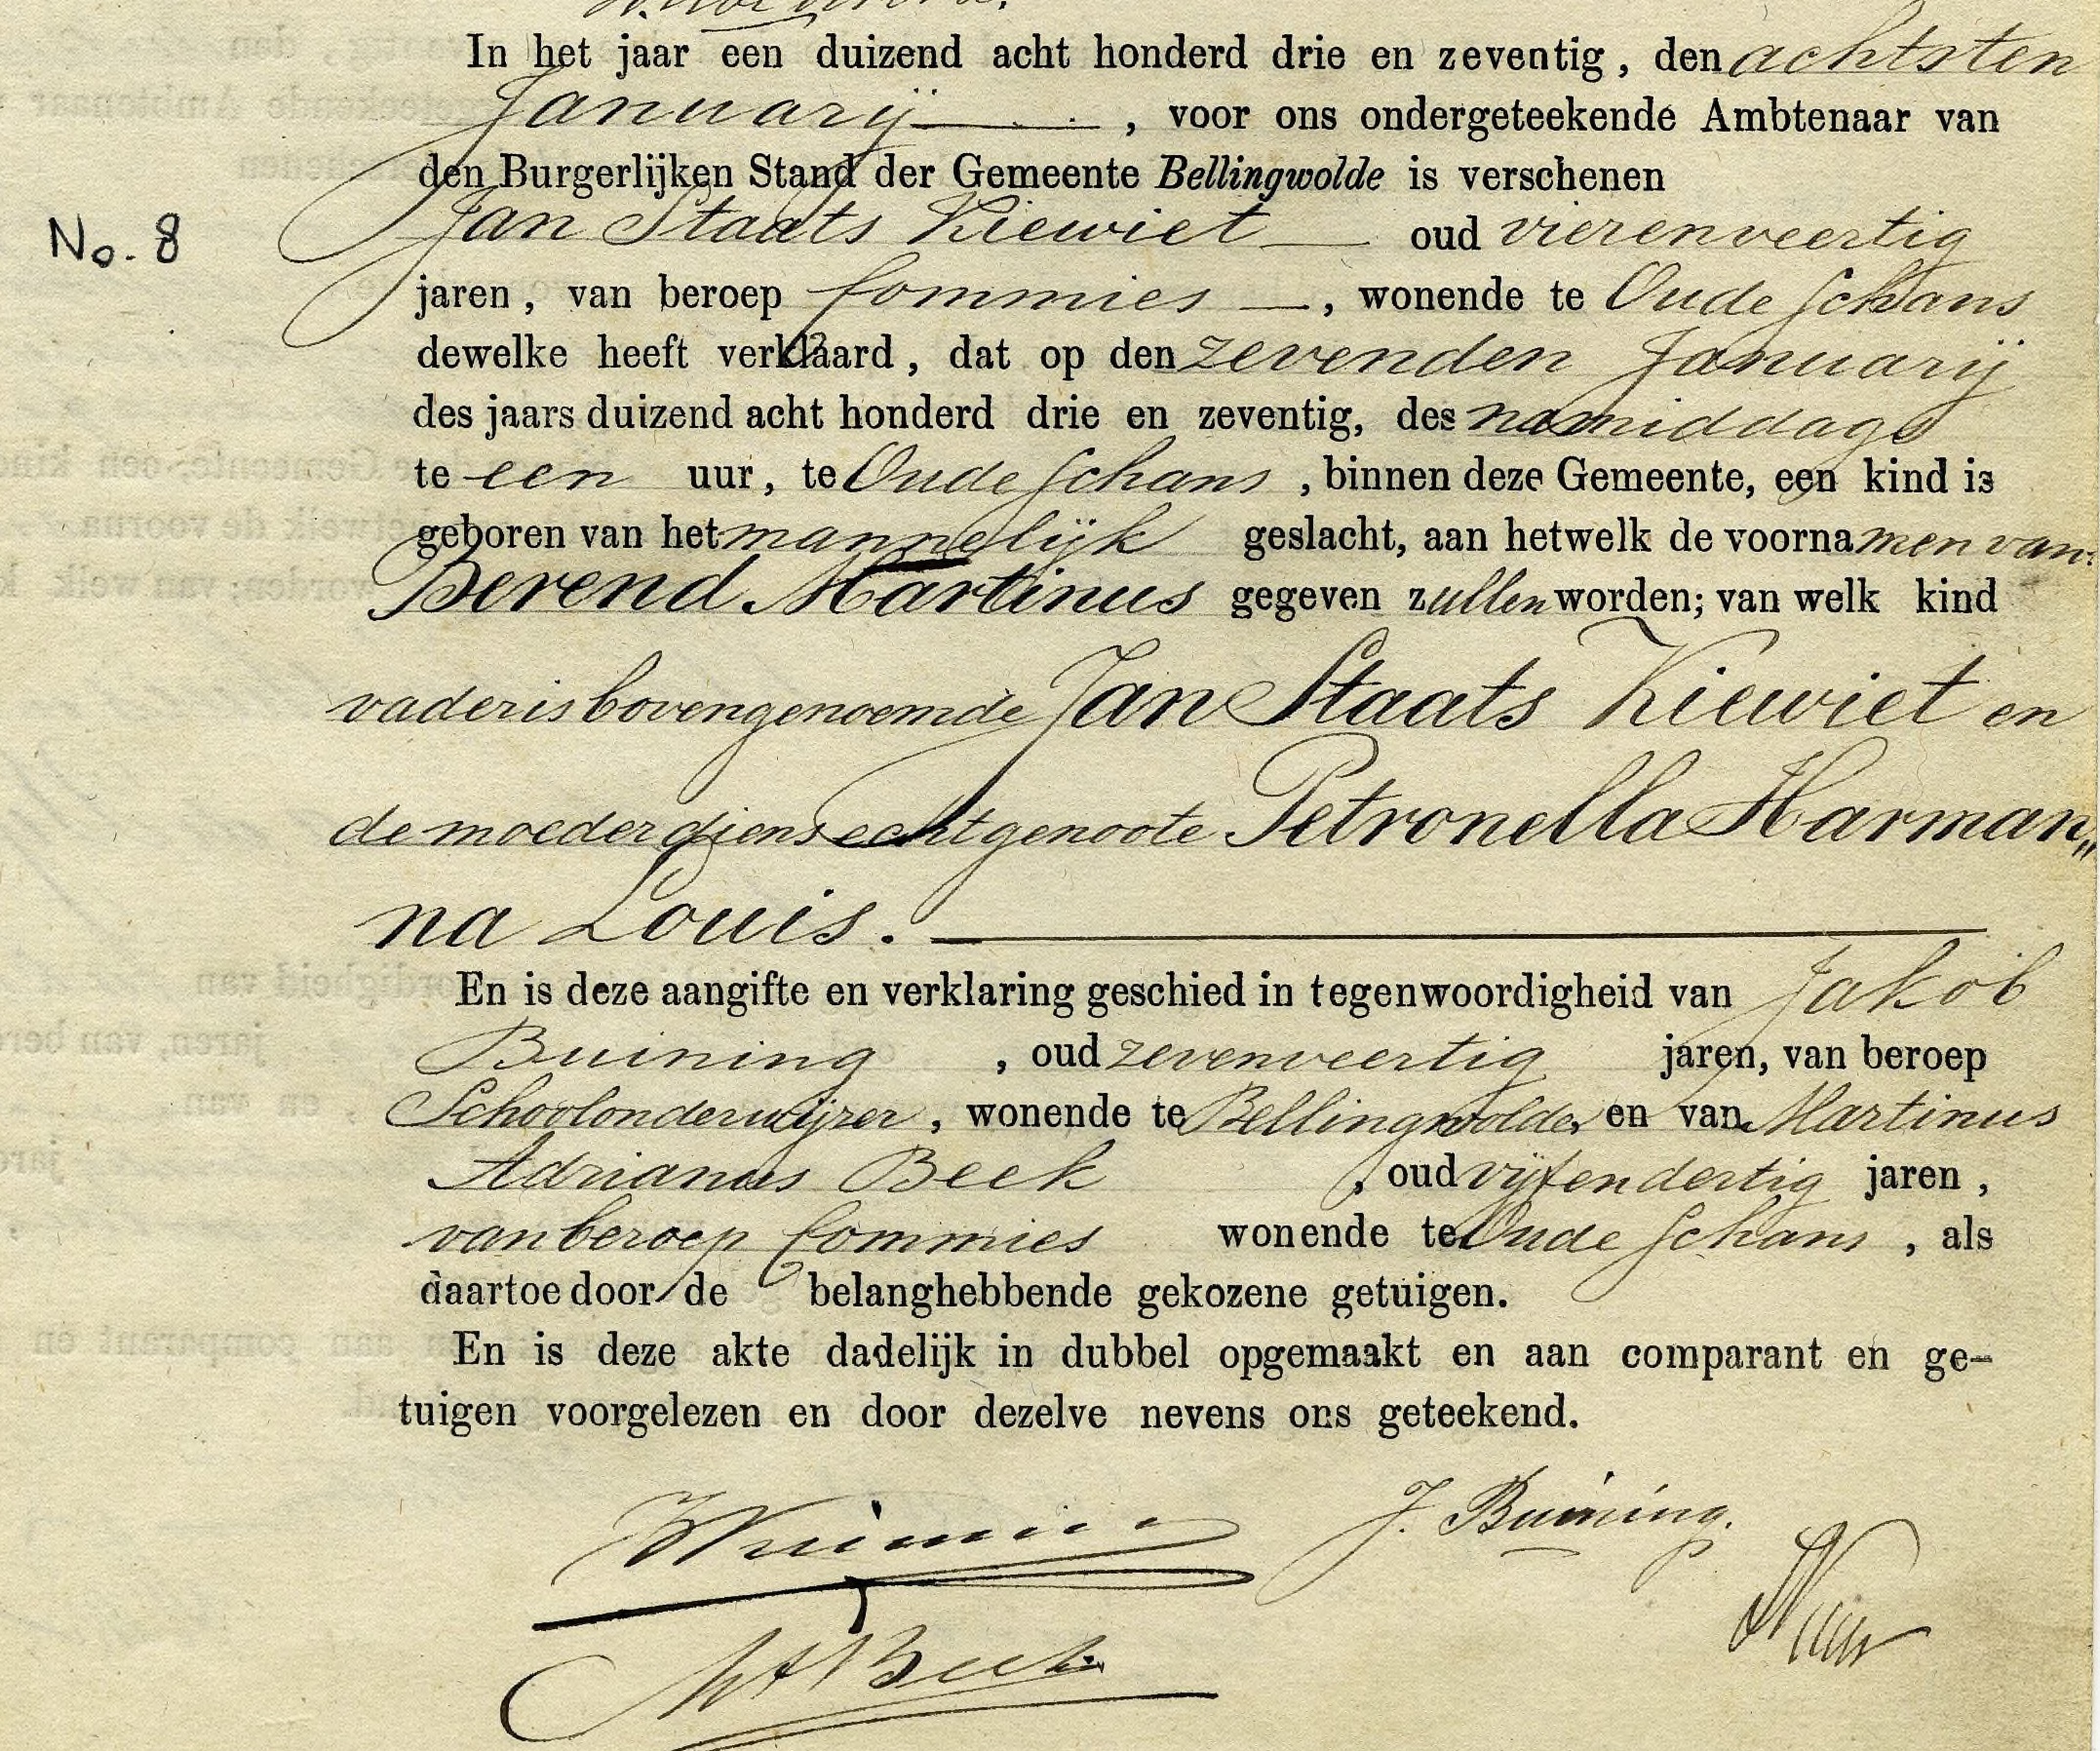 In het jaar een duizend acht honderd drie en zeventig, den achtsten
Januarij, voor ons ondergeteekende Ambtenaar van
den Burgerlijken Stand der Gemeente Bellingwolde is verschenen
No. 8
Jan Staats Kiewiet oud vierenveertig
jaren, van beroep Commies, wonende te Oude Schans
dewelke heeft verklaard, dat op den zevenden Januarij
des jaars duizend acht honderd drie en zeventig, des namiddags
te een uur, te Oude Schans, binnen deze Gemeente, een kind is
geboren van het mannelijk geslacht, aan hetwelk de voornamen van:
Berend Martinus gegeven zullen worden; van welk kind
vader is bovengenoemde Jan Staats Kiewiet en
de moeder diens echtgenoote Petronella Harman„
na Louis.
En is deze aangifte en verklaring geschied in tegenwoordigheid van Jakob
Buining, oud zevenveertig jaren, van beroep
Schoolonderwijzer, wonende te Bellingwolde en van Martinus
Adrianus Beek, oud vijfendertig jaren,
van beroep Commies wonende te Oude Schans, als
daartoe door de belanghebbende gekozene getuigen.
En is deze akte dadelijk in dubbel opgemaakt en aan comparant en ge-
tuigen voorgelezen en door dezelve nevens ons geteekend.
J. Buining.